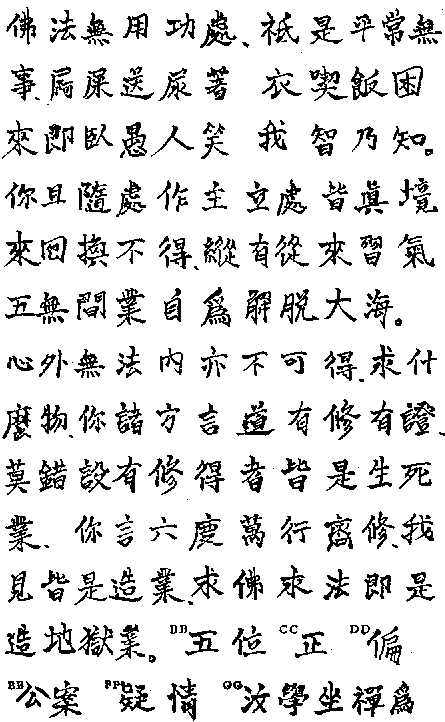 佛法無用功處、祇是平常無
事、屙屎送尿著 衣喫飯困
來即臥愚人笑 我智乃知。
你且隨處作主立處皆眞境
來回換不得、縱有從來習氣
五無間業自爲解脫大海。
心外無法內亦不可得、求什
麼物、你諸方言道有修有證、
莫錯設有修得者皆是生死
業、你言六度萬行齊修、我
見皆是造業、求佛求法即是
造地獄業。BB五位 CC正 DD偏
EE公案 FF疑情 GG汝學坐禪爲